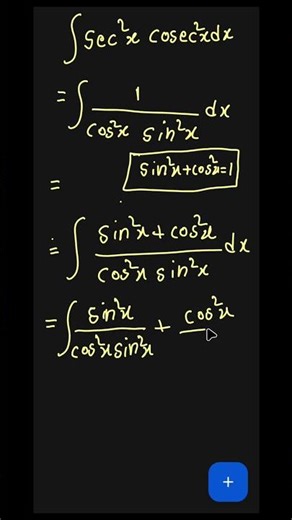 ∫ sec²x cosec²x dx
= ∫ 1 / cos²x sin²x dx
sin²x + cos²x = 1
=
= ∫ sin²x + cos²x / cos²x sin²x dx
= ∫ sin²x / cos²x sin²x + cos²x /
+